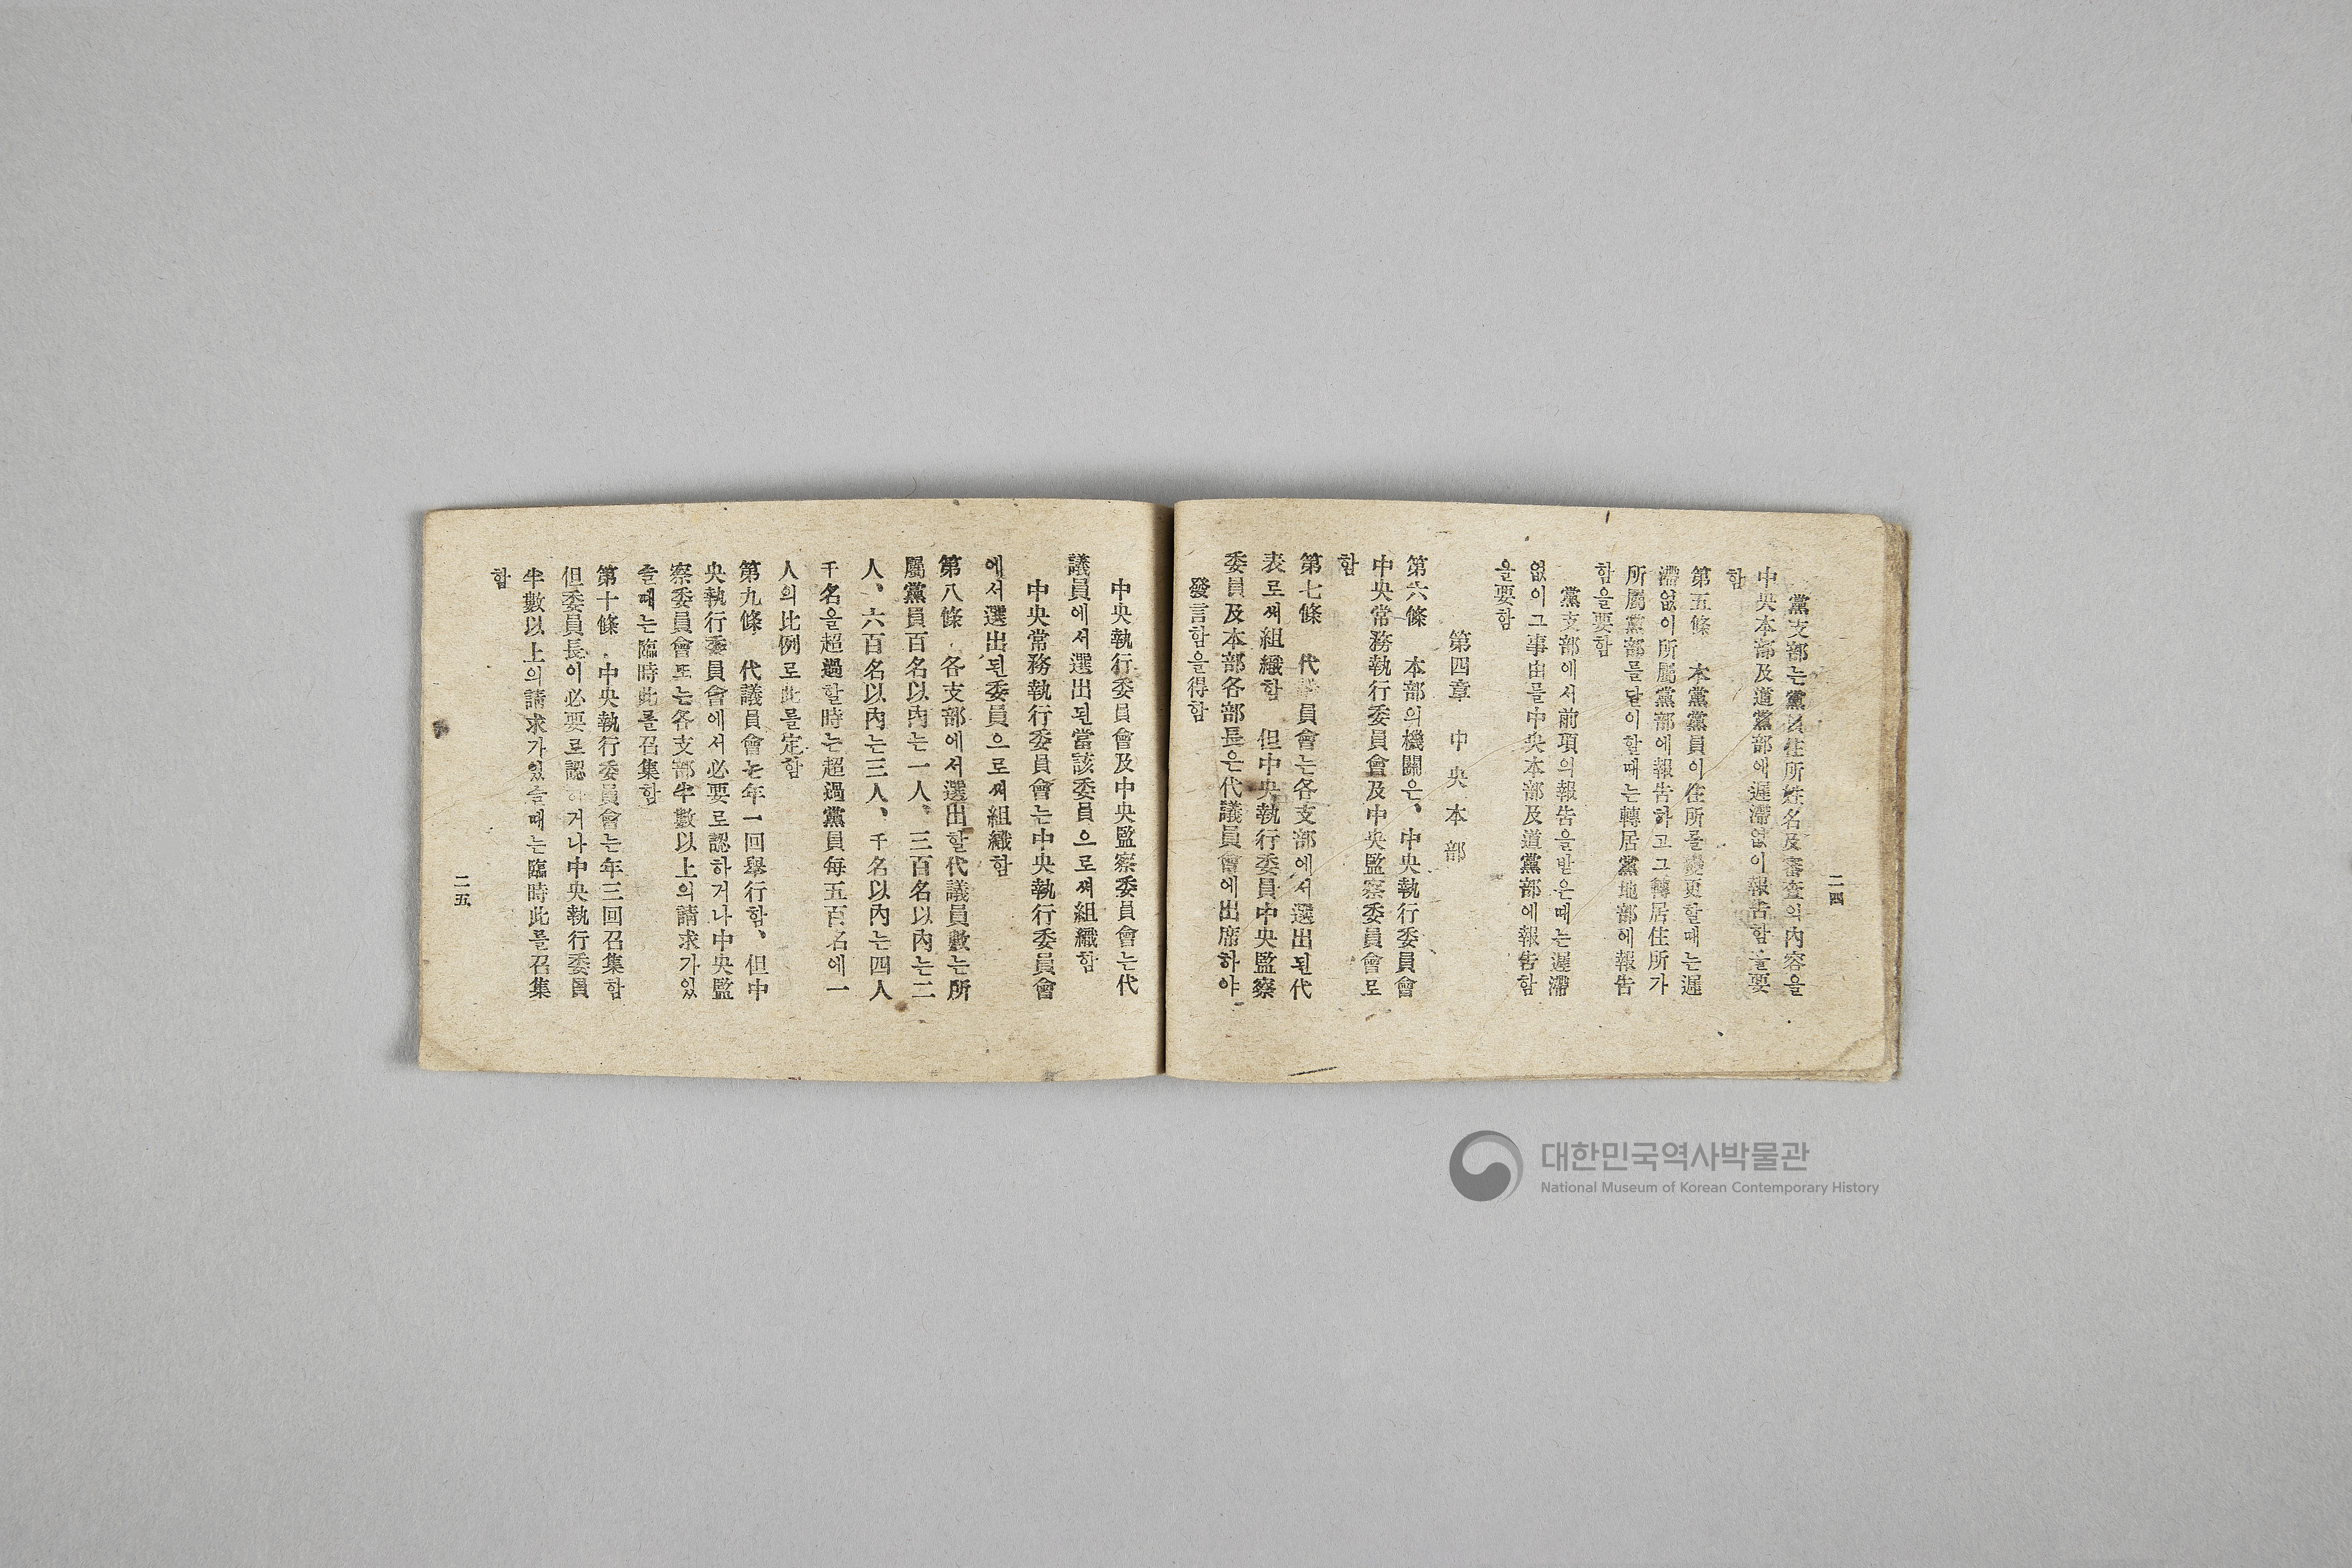 二四
黨支部는黨員住所姓名及審査의內容을
中央本部及道黨部에遲滯없이報告함을要
함
第五條 本黨黨員이住所를變更할때는遲
滯없이所屬黨部에報告하고그轉居住所가
所屬黨部를달이할때는轉居黨地部에報告
함을要함
黨支部에서前項의報告을받은때는遲滯
없이그事由를中央本部及道黨部에報告함
을要함
第四章 中央本部
第六條 本部의機關은、中央執行委員會
中央常務執行委員會及中央監察委員會로
함
第七條 代議員會는各支部에서選出된代
表로써組織함 但中央執行委員中央監察
委員及本部各部長은代議員會에出席하야
發言함을得함
中央執行委員會及中央監察委員會는代
議員에서選出된當該委員으로써組織함
中央常務執行委員會는中央執行委員會
에서選出된委員으로써組織함
第八條 各支部에서選出할代議員數는所
屬黨員百名以內는一人、三百名以內는二
人、六百名以內는三人、千名以內는四人
千名을超過할時는超過黨員每五百名에一
人의比例로此를定함
第九條 代議員會는年一回擧行함、但中
央執行委員會에서必要로認하거나中央監
察委員會또는各支部半數以上의請求가있
슬때는臨時此를召集함
第十條 中央執行委員會는年三回召集함
但委員長이必要로認하거나中央執行委員
半數以上의請求가있슬때는臨時此를召集
함
二五
대한민국역사박물관
National Museum of Korean Contemporary History